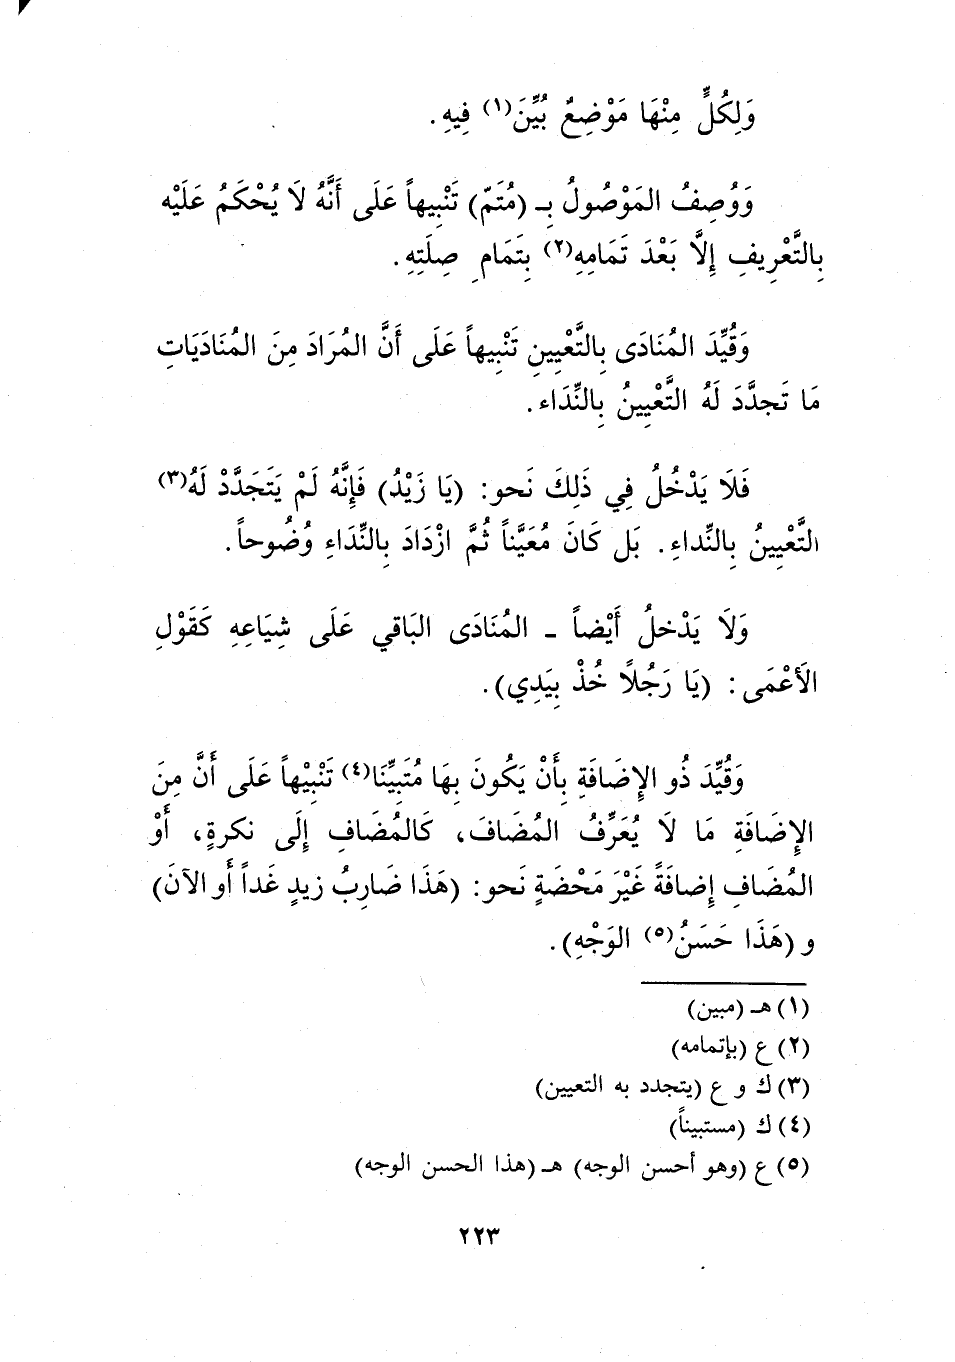 وَلِكُلٍّ مِنْهَا مَوْضِعٌ بُيِّنَ(١) فِيهِ.
وَوُصِفُ المَوْصُولُ بِـ (مُتَمّ) تَنْبِيهاً عَلَى أَنَّهُ لَا يُحْكَمُ عَلَيْه
بِالتَّعْرِيفِ إِلَّا بَعْدَ تَمَامِهِ(٢) بِتَمَامِ صِلَتِهِ.
وَقُيِّدَ المُنَادَى بِالتَّعْيِينِ تَنْبِيهاً عَلَى أَنَّ المُرَادَ مِنَ المُنَادَيَاتِ
مَا تَجدَّدَ لَهُ التَّعْيِينُ بِالنِّدَاء.
فَلَا يَدْخُلُ فِي ذَلِكَ نَحو: (يَا زَيْدُ) فَإِنَّهُ لَمْ يَتَجَدَّدْ لَهُ(٣)
التَّعْيِينُ بِالنِّداءِ. بَل كَانَ مُعَيَّناً ثُمَّ ازْدَادَ بِالنِّدَاءِ وُضُوحاً.
وَلَا يَدْخلُ أَيْضاً ـ المُنَادَى البَاقي عَلَى شِيَاعِهِ كَقَوْلِ
الأَعْمَى: (يَا رَجُلًا خُذْ بِيَدِي).
وَقُيِّدَ ذُو الإِضَافَةِ بِأَنْ يَكُونَ بِهَا مُتَبيِّنَا(٤) تَنْبِيْهاً عَلَى أَنَّ مِنَ
الإِضَافَةِ مَا لَا يُعَرِّفُ المُضَافَ، كَالمُضَافِ إِلَى نكرةٍ، أَوْ
المُضَافِ إِضافَةً غَيْرَ مَحْضَةٍ نَحو: (هَذَا ضَارِبُ زيدٍ غَداً أَو الآنَ)
و (هَذَا حَسَنُ(٥) الوَجْهِ).
(١) هـ (مبين)
(٢) ع (بإتمامه)
(٣) ك و ع (يتجدد به التعيين)
(٤) ك (مستبيناً)
(٥) ع (وهو أحسن الوجه) هـ (هذا الحسن الوجه)
٢٢٣